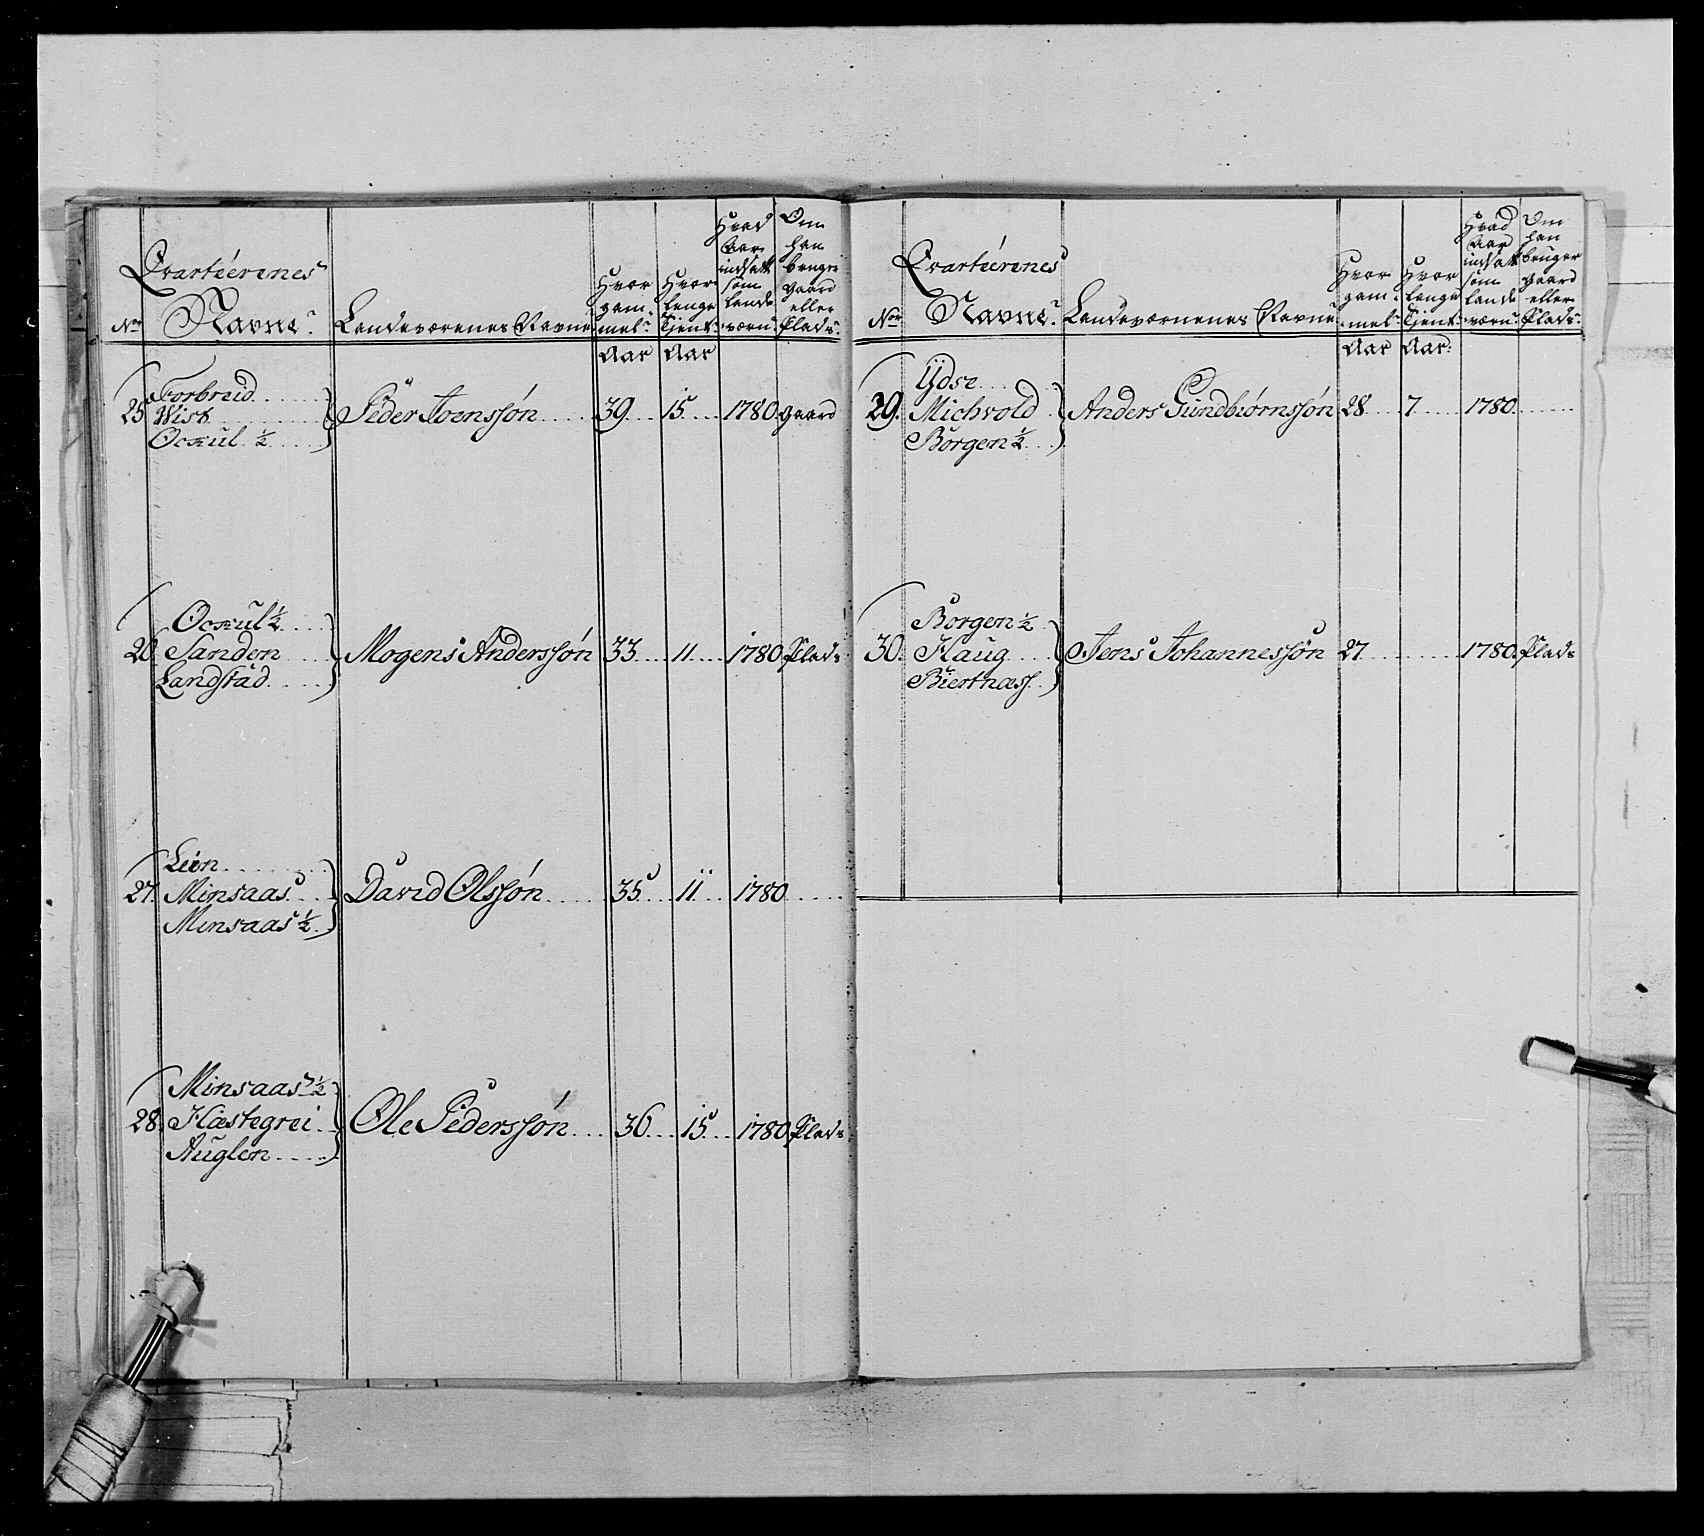 No. Qvarteerenes Navne. Landeværnenes Navne Hvor gammel. Hvor lenge Tjent. Hvad Aar indsatt som Landeværn. Om han bruger gaard eller Plads.
Aar Aar
25. Forbreid
Wist
Ocxul ½
Peder Joenssøn 39 15 1780 gaard
26. Ocxul ½
Sanden
Landstad
Mogens Anderssøn 33 11 1780 Plads
27. Leen
Minsaas
Minsaas ½
David Olssøn 35 11 1780
28. Minsaas ½
Hæstegrei
Auglen
Ole Pederssøn 36 15 1780 Plads
No. Qvarteerenes Navne. Landeværnenes Navne Hvor gammel. Hvor lenge Tjent. Hvad Aar indsatt som Landeværn. Om han bruger gaard eller Plads.
Aar Aar.
29. Ydse
Michvold
Borgen ½
Anders Gundbiørnssøn 28 7 1780
30. Borgen ½
Haug
Biertnæss
Jens Johannessøn 27 1780. Plads